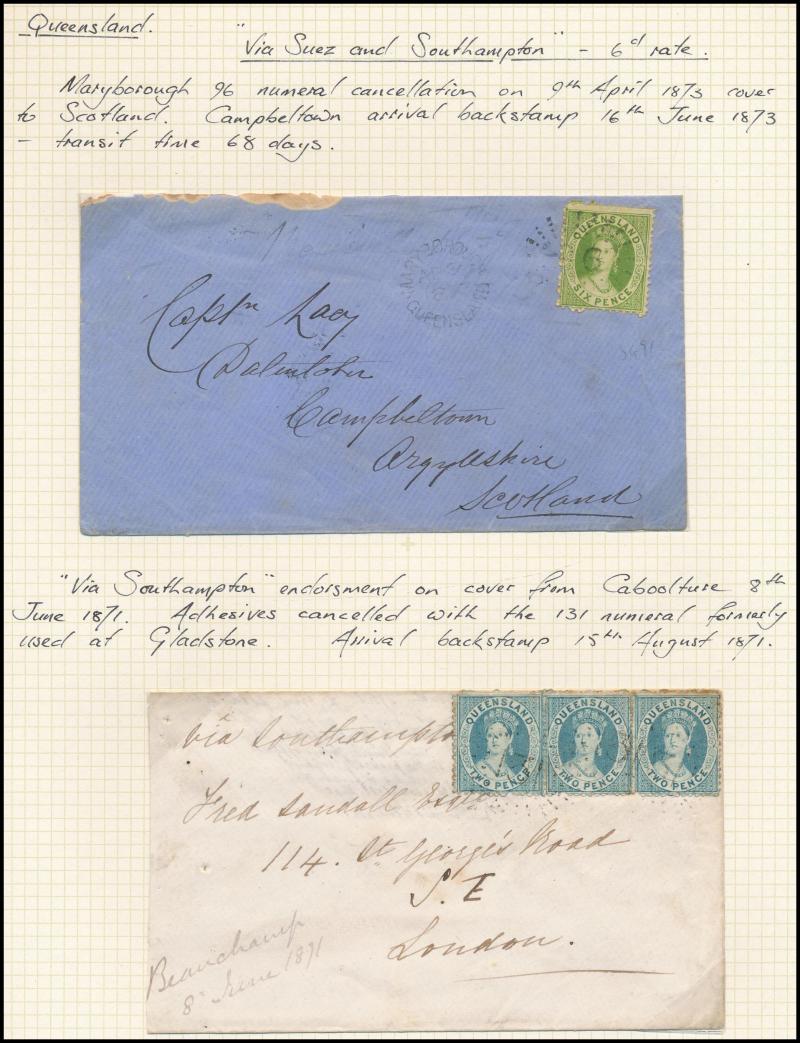 Queensland.
"Via Suez and Southampton" - 6d rate.
Maryborough 96 numeral cancellation on 9th April 1873 cover
to Scotland. Campbeltown arrival backstamp 16th June 1873
- transit time 68 days.
QUEENSLAND
SIX PENCE
QUEENSLAND
Captn Lacy
Dalintober
Campbeltown
Argyllshire
Scotland
"Via Southampton" endorsment on cover from Caboolture 8th
June 1871. Adhesives cancelled with the 131 numeral formerly
used at Gladstone. Arrival backstamp 15th August 1871.
QUEENSLAND QUEENSLAND QUEENSLAND
TWO PENCE TWO PENCE TWO PENCE
via Southampton
Fred Sandall Esqre
114. St George's Road
S. E
London.
Beauchamp
8 June 1871